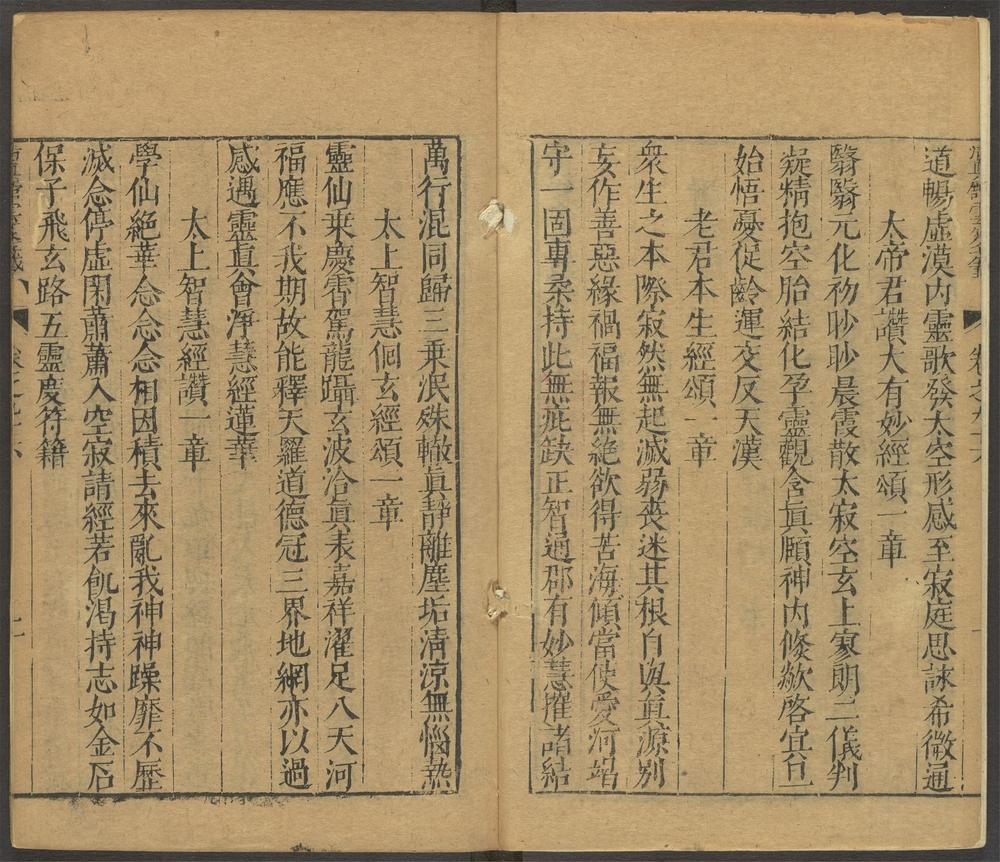 道暢虛漠內靈歌發太空形感至寂庭思詠希微通
太帝君讚大有妙經頌一章
翳翳元化初眇眇晨霞散太寂空玄上寥朗二儀判
凝精抱空胎結化孕靈觀含真頤神內倏歘啓宜旦
始悟憂促齡運交反天漢
老君本生經頌一章
衆生之本際寂然無起滅弱喪迷其根自與真源別
妄作善惡緣禍福報無絕欲得苦海傾當使愛河竭
守一固專柔持此無疵缺正智通郡有妙慧摧諸結
萬行混同歸三乘泯殊轍真靜離塵垢清涼無惱熱
太上智慧侗玄經頌一章
靈仙乘慶霄駕龍躡玄波洽真表嘉祥濯足八天河
福應不我期故能釋天羅道德冠三界地網亦以過
感遇靈真會淨慧經蓮華
太上智慧經讚一章
學仙絕華念念念相因積去來亂我神神躁靡不歷
滅念停虛閑蕭蕭入空寂請經若飢渴持志如金石
保子飛玄路五靈慶符籍